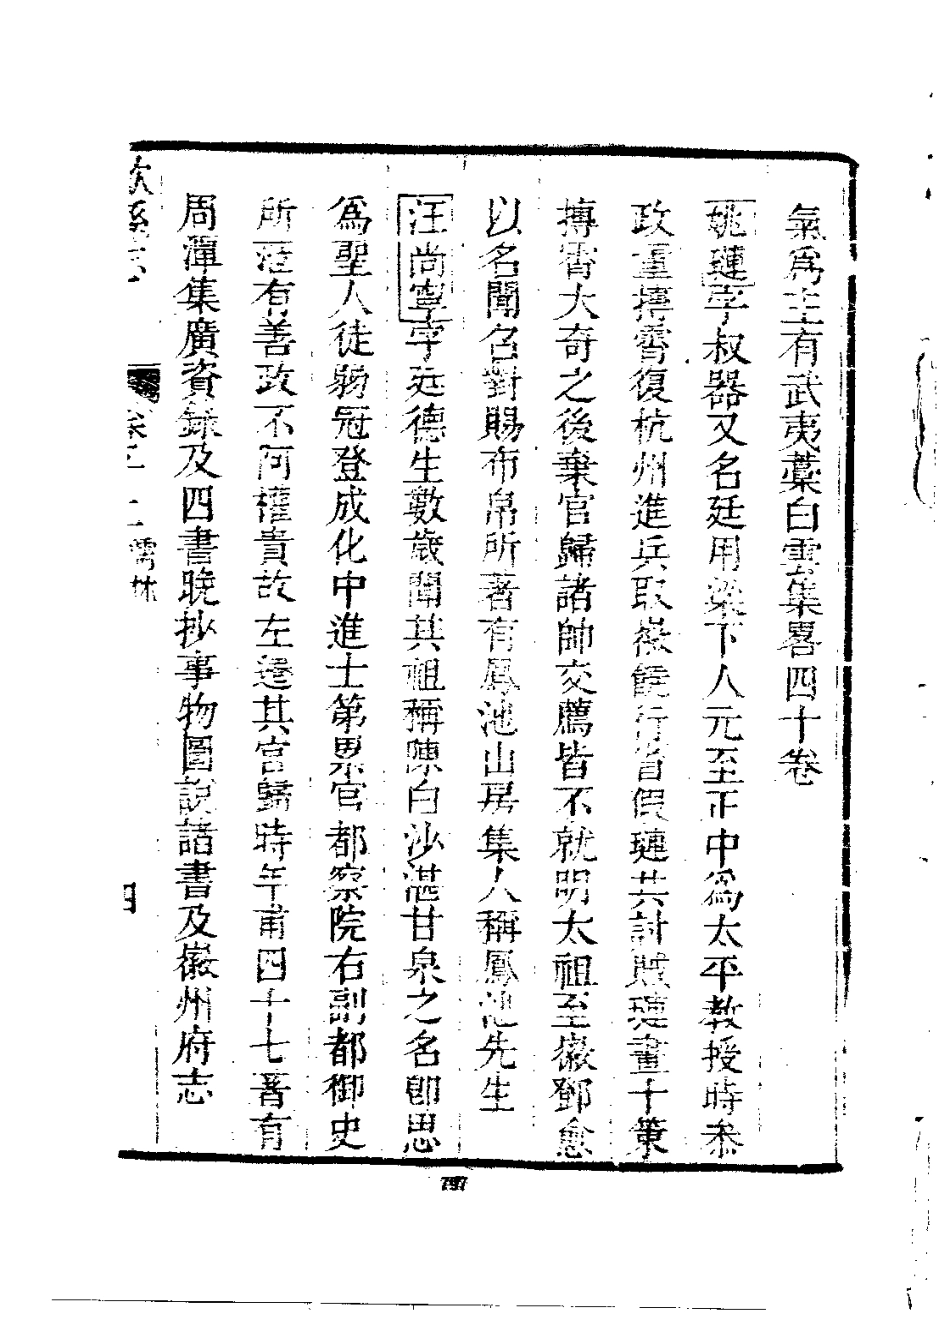 氣爲主有武夷藁白雲集畧四十卷
姚璉字叔器又名廷用梁下人元至正中爲太平教授時叅
政董摶霄復杭州進兵取徽饒行省假璉共討賊璉畫十策
摶霄大奇之後棄官歸諸帥交薦皆不就明太祖至徽鄧愈
以名聞召對賜布帛所著有鳳池山房集人稱鳳池先生
汪尚寧字廷德生數歲聞其祖稱陳白沙湛甘泉之名卽思
爲聖人徒弱冠登成化中進士第累官都察院右副都御史
所涖有善政不阿權貴故左遷其官歸時年甫四十七著有
周潭集廣資錄及四書晚抄事物圖說諸書及徽州府志
歙縣志
卷
儒林
四
797